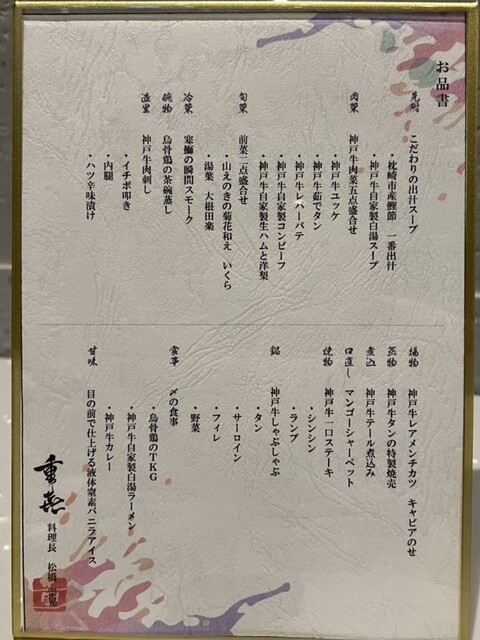 お品書
先附 こだわりの出汁スープ
枕崎市産鰹節 一番出汁
・神戸牛自家製白湯スープ
肉菜 神戸牛肉菜五点盛合せ
・神戸牛ユッケ
・神戸牛茹でタン
・神戸牛レバーパテ
・神戸牛自家製コンビーフ
・神戸牛自家製生ハムと洋梨
旬菜 前菜二点盛合せ
・山えのきの菊花和え いくら
・湯葉 大根田楽
冷菜 寒鰤の瞬間スモーク
碗物 烏骨鶏の茶碗蒸し
造里 神戸牛肉刺し
・イチボ叩き
・内腿
・ハツ辛味漬け
揚物 神戸牛レアメンチカツ キャビアのせ
蒸物 神戸牛タンの特製焼売
煮込 神戸牛テール煮込み
口直し マンゴーシャーベット
焼物 神戸牛一口ステーキ
・シンシン
・ランプ
鍋 神戸牛しゃぶしゃぶ
・タン
・サーロイン
・フィレ
野菜
食事 〆の食事
・烏骨鶏のTKG
・神戸牛自家製白湯ラーメン
・神戸牛カレー
甘味 目の前で仕上げる液体窒素バニラアイス
重喜
料理長 松橋